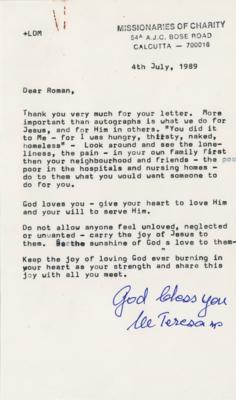 MISSIONARIES OF CHARITY
54A A.J.C. BOSE ROAD
CALCUTTA - 700016
+LDM
4th July, 1989
Dear Roman,
Thank you very much for your letter. More
important than autographs is what we do for
Jesus, and for Him in others. "You did it
to Me - for I was hungry, thirsty, naked,
homeless" - Look around and see the lone-
liness, the pain - in your own family first
then your neighbourhood and friends - the poo
poor in the hospitals and nursing homes -
do to them what you would want someone to
do for you.
God loves you - give your heart to love Him
and your will to serve Him.
Do not allow anyone feel unloved, neglected
or unwanted - carry the joy of Jesus to
them. Be the sunshine of God s love to them-
Keep the joy of loving God ever burning in
your heart as your strength and share this
joy with all you meet.
God bless you
M Teresa mc